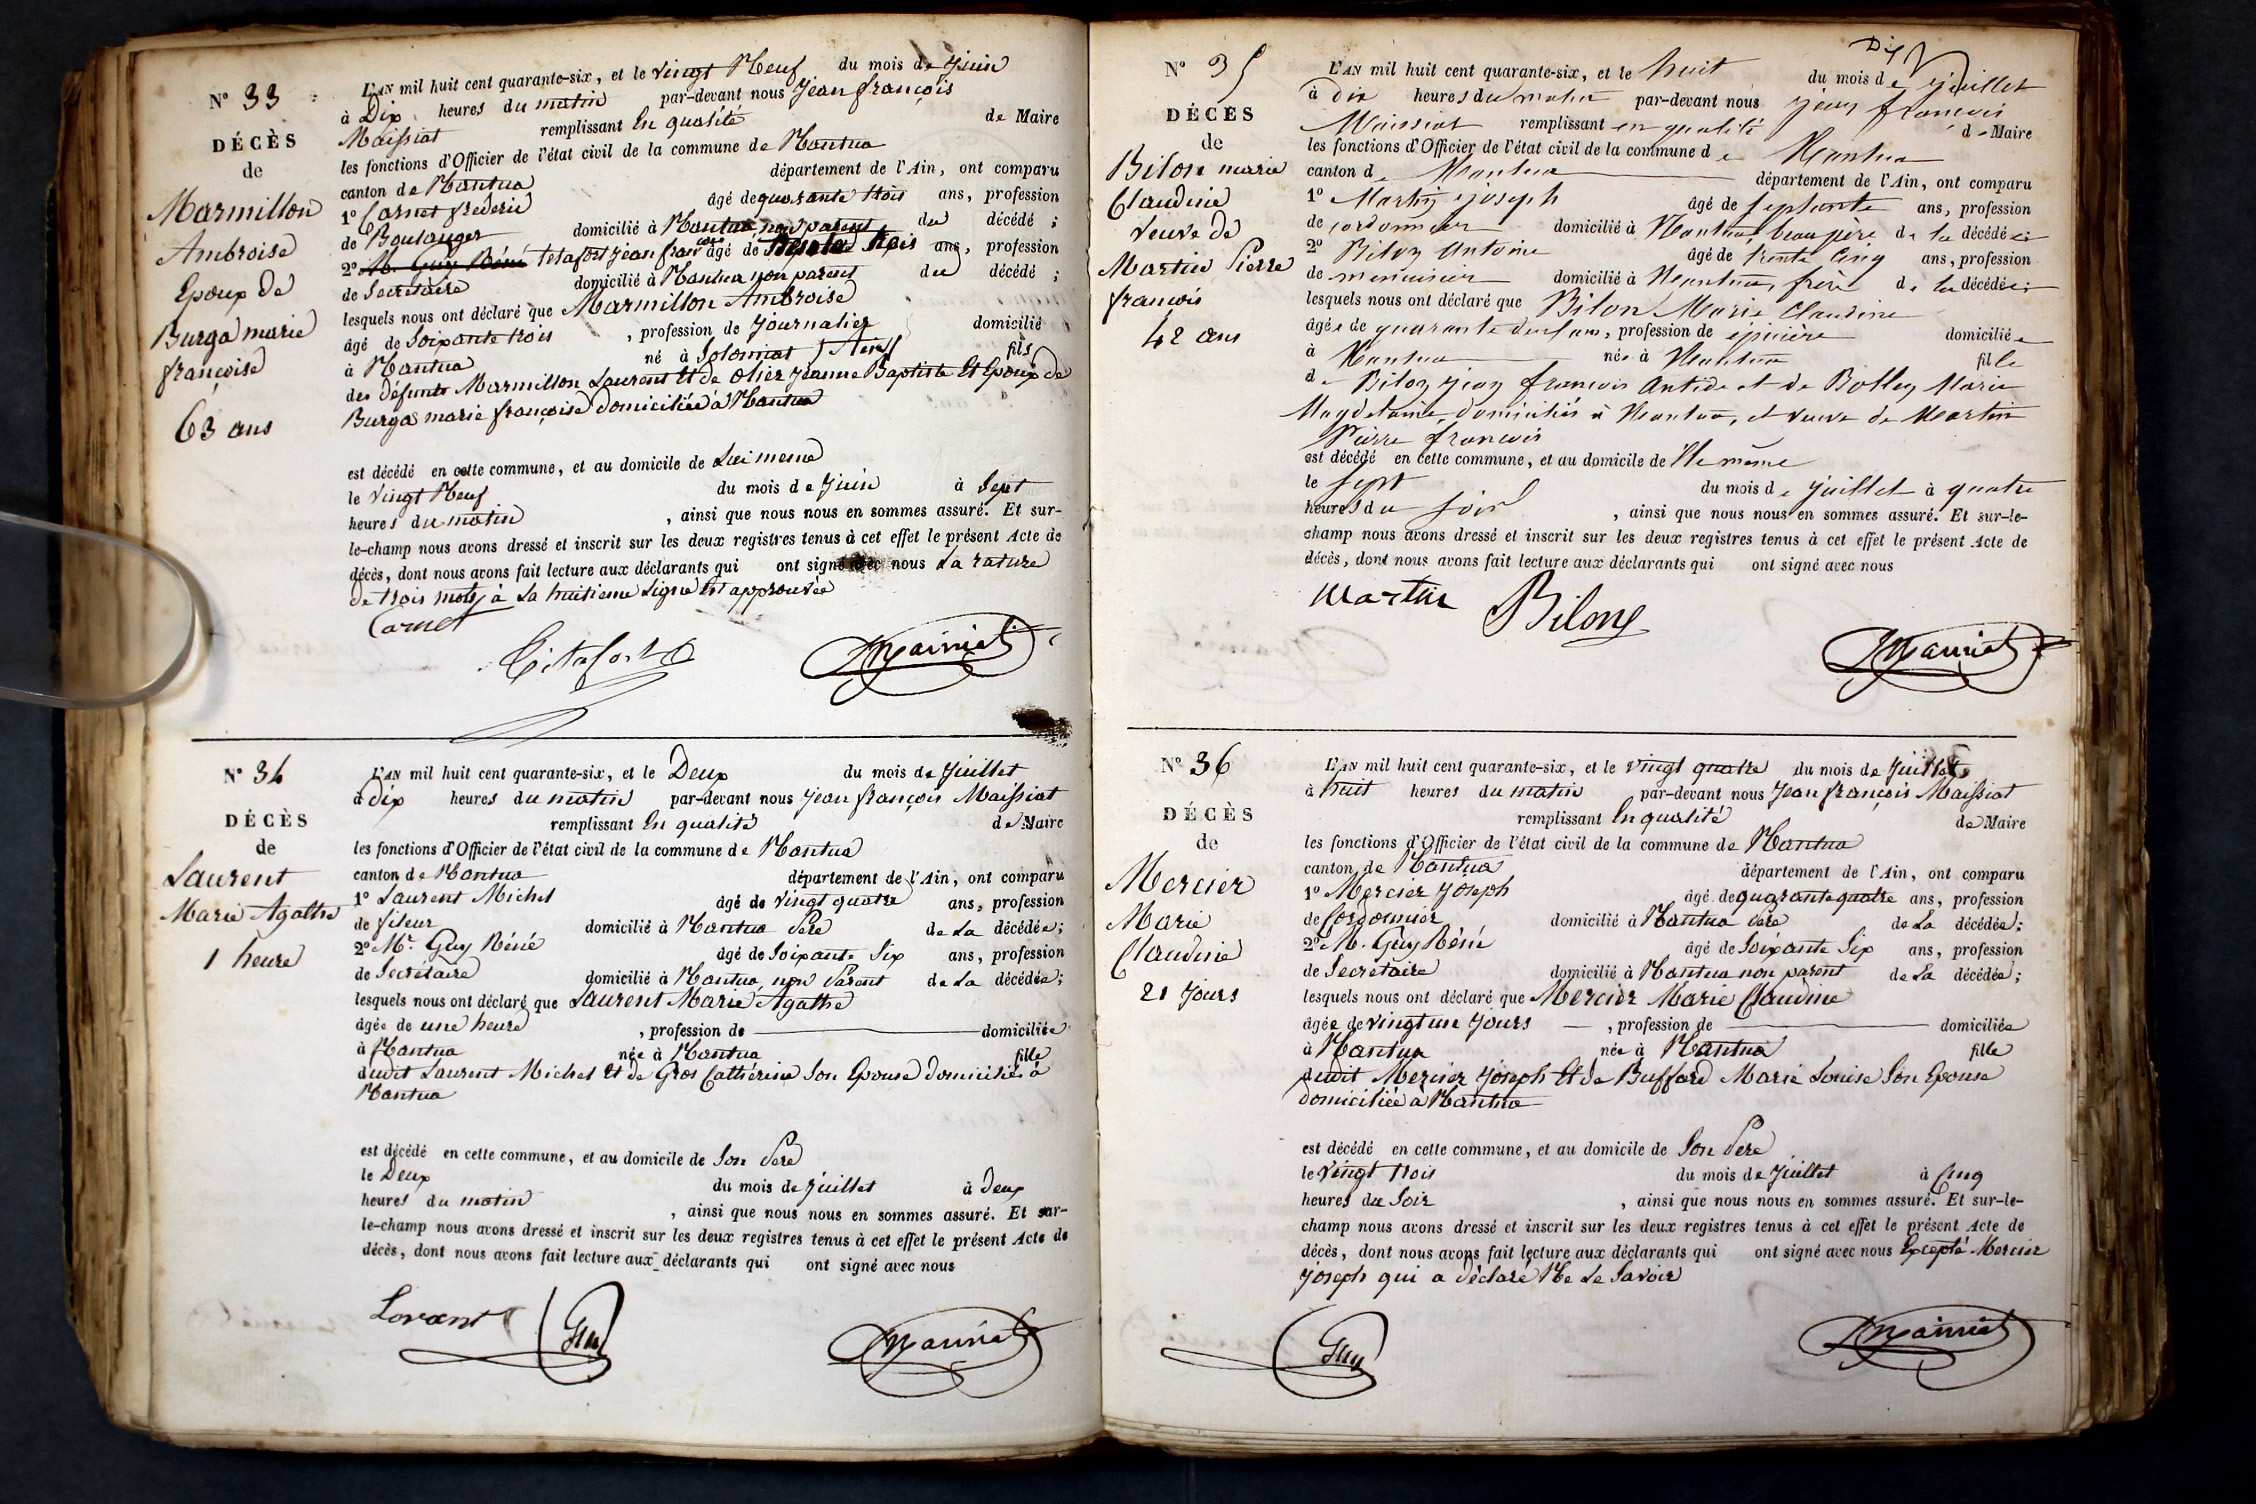 N° 33
DÉCÈS
de
Marmillon
Ambroise
Epoux de
Burga marie
françoise
63 ans
L'AN mil huit cent quarante-six, et le vingt Neuf du mois de Juin
à Dix heures du matin par-devant nous Jean françois
Maissiat remplissant En qualité de Maire
les fonctions d'Officier de l'état civil de la commune de Nantua
canton de Nantua département de l'Ain, ont comparu
1° Carnet frederic âgé de quarante trois ans, profession
de Boulanger domicilié à Nantua non parent du décédé ;
2° M. Guy Béné tetafort Jean fran âgé de trois ans, profession
de Secrétaire domicilié à Nantua non parent du décédé ;
lesquels nous ont déclaré que Marmillon Ambroise
âgé de Soixante trois , profession de Journalier domicilié
à Nantua né à Solomiat (Ain) fils
des défunts Marmillon Laurent Et de Olier Jeanne Baptiste Et Epoux de
Burga marie françoise domiciliée à Nantua
est décédé en cette commune, et au domicile de Lui meme
le Vingt Neuf du mois de Juin à Sept
heures du matin , ainsi que nous nous en sommes assuré. Et sur-
le-champ nous avons dressé et inscrit sur les deux registres tenus à cet effet le présent Acte de
décès, dont nous avons fait lecture aux déclarants qui ont signé avec nous La rature
de trois mots à La huitieme Ligne Est approuvée
Carnet
Tetafort
Maissiat
N° 34
DÉCÈS
de
Laurent
Marie Agathe
1 heure
L'AN mil huit cent quarante-six, et le Deux du mois de Juillet
à dix heures du matin par-devant nous Jean françois Maissiat
remplissant En qualité de Maire
les fonctions d'Officier de l'état civil de la commune de Nantua
canton de Nantua département de l'Ain, ont comparu
1° Laurent Michel âgé de vingt quatre ans, profession
de fileur domicilié à Nantua Père de La décédée;
2° Mr. Guy Béné âgé de Soixante Six ans, profession
de Secrétaire domicilié à Nantua, non Parent de La décédée;
lesquels nous ont déclaré que Laurent Marie Agathe
âgée de une heure , profession de domiciliée
à Nantua née à Nantua fille
dudit Laurent Michel Et de Gros Catherine Son Epouse domiciliés à
Nantua
est décédé en cette commune, et au domicile de Son Père
le Deux du mois de Juillet à deux
heures du matin , ainsi que nous nous en sommes assuré. Et sur-
le-champ nous avons dressé et inscrit sur les deux registres tenus à cet effet le présent Acte de
décès, dont nous avons fait lecture aux déclarants qui ont signé avec nous
Lorant Guy Maissiat
N° 35
DÉCÈS
de
Bilon marie
Claudine
veuve de
Martin Pierre
françois
42 ans
L'AN mil huit cent quarante-six, et le huit du mois de Juillet
à dix heures du matin par-devant nous Jean françois
Maissiat remplissant en qualité de Maire
les fonctions d'Officier de l'état civil de la commune de Nantua
canton de Nantua département de l'Ain, ont comparu
1° Martin joseph âgé de septante ans, profession
de cordonnier domicilié à Nantua, beau père de la décédée;
2° Bilon Antoine âgé de trente cinq ans, profession
de menuisier domicilié à Nantua, frère de la décédée;
lesquels nous ont déclaré que Bilon Marie Claudine
âgée de quarante deux ans, profession de épicière domiciliée
à Nantua née à Nantua fille
de Bilon jean françois Antide et de Bolley Marie
Magdelaine, domiciliés à Nantua, et veuve de Martin
Pierre françois
est décédé en cette commune, et au domicile de Elle même
le sept du mois de juillet à quatre
heures du soir , ainsi que nous nous en sommes assuré. Et sur-le-
champ nous avons dressé et inscrit sur les deux registres tenus à cet effet le présent Acte de
décès, dont nous avons fait lecture aux déclarants qui ont signé avec nous
Martin Bilon
Maissiat
N° 36
DÉCÈS
de
Mercier
Marie
Claudine
21 Jours
L'AN mil huit cent quarante-six, et le vingt quatre du mois de Juillet
à huit heures du matin par-devant nous Jean françois Maissiat
remplissant En qualité de Maire
les fonctions d'Officier de l'état civil de la commune de Nantua
canton de Nantua département de l'Ain, ont comparu
1° Mercier Joseph âgé de quarante quatre ans, profession
de Cordonnier domicilié à Nantua Père de La décédée;
2° M. Guy Béné âgé de Soixante Six ans, profession
de Secrétaire domicilié à Nantua non parent de La décédée;
lesquels nous ont déclaré que Mercier Marie Claudine
âgée de vingt un Jours , profession de domiciliée
à Nantua née à Nantua fille
dudit Mercier Joseph Et de Buffard Marie Louise Son Epouse
domiciliée à Nantua
est décédé en cette commune, et au domicile de Son Père
le vingt trois du mois de Juillet à Cinq
heures du Soir , ainsi que nous nous en sommes assuré. Et sur-le-
champ nous avons dressé et inscrit sur les deux registres tenus à cet effet le présent Acte de
décès, dont nous avons fait lecture aux déclarants qui ont signé avec nous Excepté Mercier
Joseph qui a déclaré Ne Le Savoir
Guy Maissiat